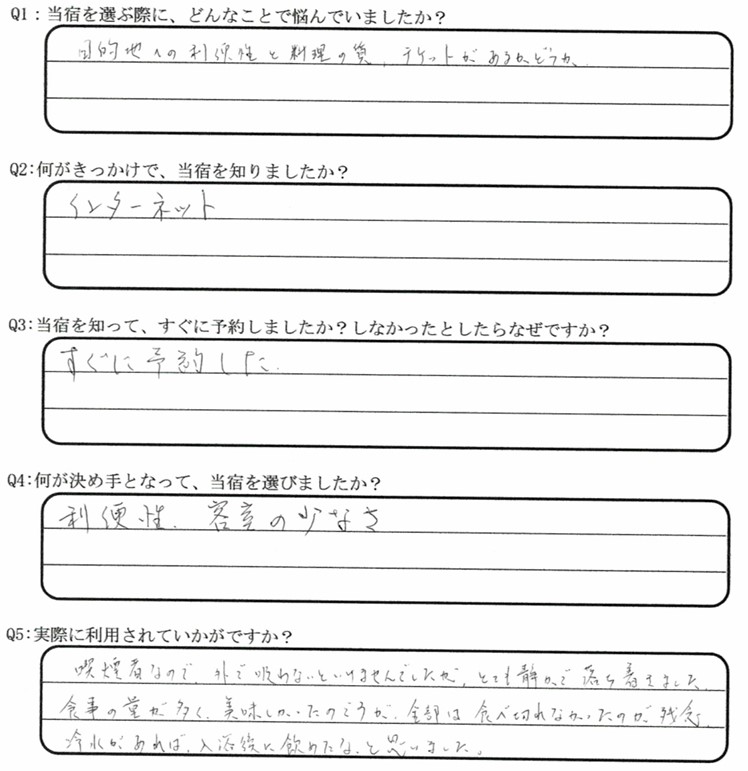 Q1：当宿を選ぶ際に、どんなことで悩んでいましたか？
目的地への利便性と料理の質、チケットがあるかどうか。
Q2：何がきっかけで、当宿を知りましたか？
インターネット
Q3：当宿を知って、すぐに予約しましたか？しなかったとしたらなぜですか？
すぐに予約した。
Q4：何が決め手となって、当宿を選びましたか？
利便性、客室の少なさ
Q5：実際に利用されていかがですか？
喫煙者なので、外で吸わないといけませんでしたが、とても静かで落ち着きました。
食事の量が多く、美味しかったのですが、全部は食べ切れなかったのが残念。
冷水があれば、入浴後に飲めたな、と思いました。